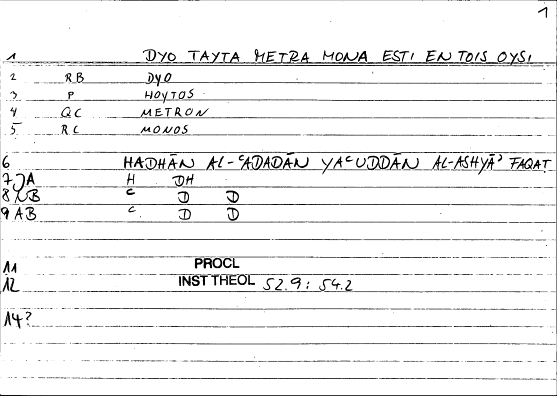 1
1 DYO TAYTA METRA MONA ESTI EN TOIS OYSI
2 RB DYO
3 P HOYTOS
4 QC METRON
5 RC MONOS
6 HADHĀN AL-ᶜADADĀN YAᶜUDDĀN AL-ASHYĀʾ FAQAT
7 JA H DH
8 XB ᶜ D D
9 AB ᶜ D D
11 PROCL
12 INST THEOL 52.9; 54.2
14?